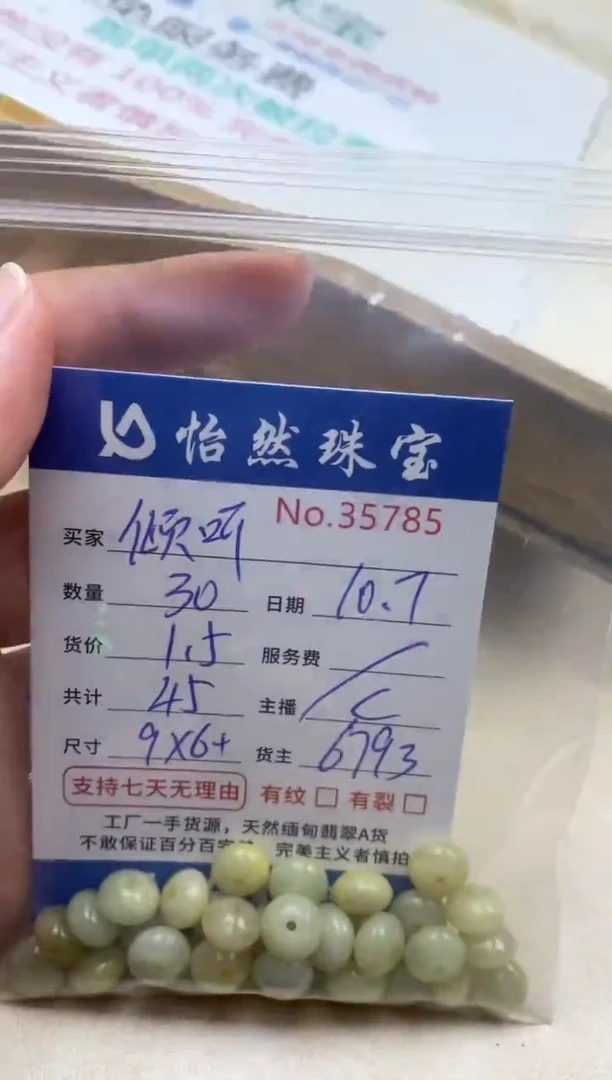 怡然珠宝
No.35785
买家 倾听
数量 30 日期 10.7
货价 1.5 服务费 /
共计 45 主播 C
尺寸 9X6+ 货主 6793
支持七天无理由 有纹 □ 有裂 □
工厂一手货源，天然缅甸翡翠A货
不敢保证百分百完美，完美主义者慎拍